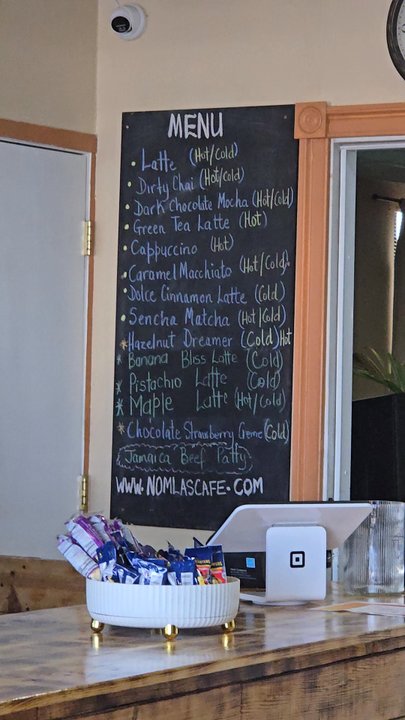 MENU
• Latte (Hot/Cold)
• Dirty Chai (Hot/Cold)
• Dark Chocolate Mocha (Hot/Cold)
• Green Tea Latte (Hot)
• Cappuccino (Hot)
• Caramel Macchiato (Hot/Cold)
• Dolce Cinnamon Latte (Cold)
• Sencha Matcha (Hot/Cold)
* Hazelnut Dreamer (Cold) Hot
* Banana Bliss Latte (Cold)
* Pistachio Latte (Cold)
* Maple Latte (Hot/Cold)
* Chocolate Strawberry Creme (Cold)
Jamaica Beef Patty
WWW.NOMLASCAFE.COM